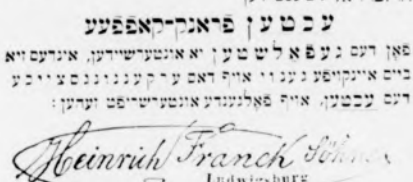 עכטען פראנק-קאפפעע
פאן דעם געפאלשטען יא אונטערשיידען, אינדעם זיא
ביים איינקויפע גענוי אויף דאס ערקענונגסצייכען
דעס עכטען, אויף פאלגענדע אונטערשריפט זעהען:
Heinrich Franck Söhne
Ludwigsburg